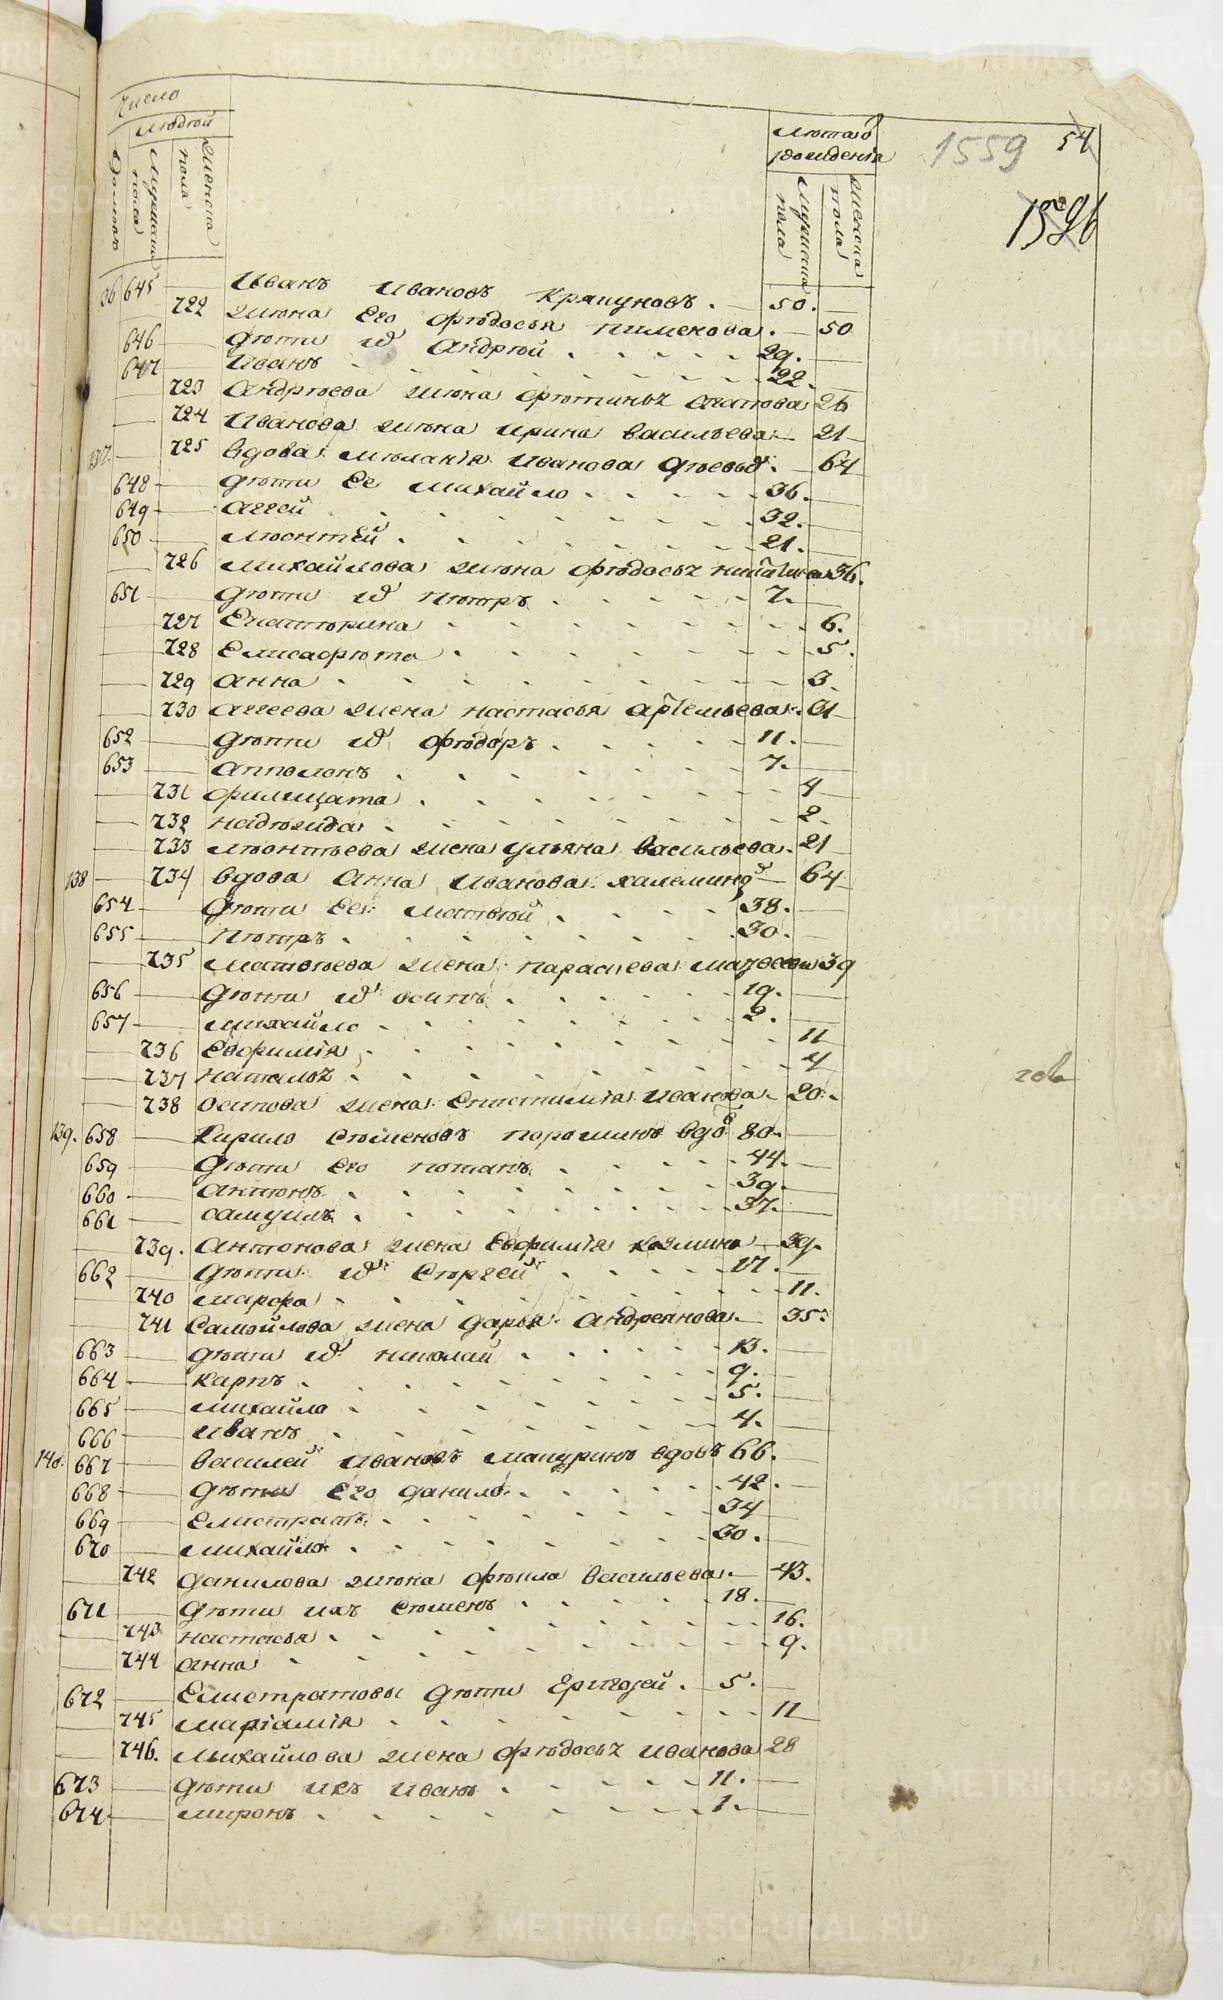 METRIKI.GASO-URAL.RU
Число
людей
Домовъ
мужеска пола
женска пола
лѣта отъ рождения
мужеска пола
женска пола
1559
54
1526
136 645 Иванъ Ивановъ Крапуновъ 50
722 жена Его Фѣдосья Пименова 50
646 дѣти ихъ Андрѣй 29
647 Иванъ 22
723 Андрѣева жена Фѣтинья Агапова 26
724 Иванова жена Ирина Васильева 21
137 725 вдова Мѣланiя Иванова 64
648 дѣти Ее Михайло 36
649 Аггей 32
650 Лѣонтѣй 21
726 Михайлова жена Фѣдосья 36
651 дѣти ихъ Пѣтръ 7
727 Екатѣрина 6
728 Елисафѣта 5
729 Анна 3
730 Аггеева жена Настасья Артемьева 31
652 дѣти ихъ Фѣдоръ 11
653 Апполонъ 7
731 Филицата 4
732 Надѣжда 2
733 Лѣонтьева жена Ульяна Васильева 21
138 734 вдова Анна Иванова 64
654 дѣти Ее Матвѣй 38
655 Пѣтръ 30
735 Матвѣева жена Параскева 39
656 дѣти ихъ Осипъ 19
657 Михайло 2
736 Евфимiя 11
737 Наталья 4
738 Осипова жена Епистимiя Иванова 20
139 658 Кирило Сѣменовъ Порошинъ вдовъ 80
659 дѣти Его Потапъ 44
660 Антонъ 39
661 Самуилъ 37
739 Антонова жена Евфимiя Козмина 39
662 дѣти ихъ Сѣргей 17
740 Марфа 11
741 Самойлова жена Дарья Андреянова 35
663 дѣти ихъ Николай 13
664 Карпъ 9
665 Михайло 5
666 Иванъ 4
140 667 Василей Ивановъ Мануринъ вдовъ 66
668 дѣти Его Данило 42
669 Елистратъ 34
670 Михайло 30
742 Данилова жена Фѣкла Васильева 43
671 дѣти ихъ Сѣменъ 18
743 Настасья 16
744 Анна 9
672 Елистратовы дѣти 5
745 Марiамiя 11
746 Михайлова жена Фѣдосья Иванова 28
673 дѣти ихъ Иванъ 11
674 Миронъ 1